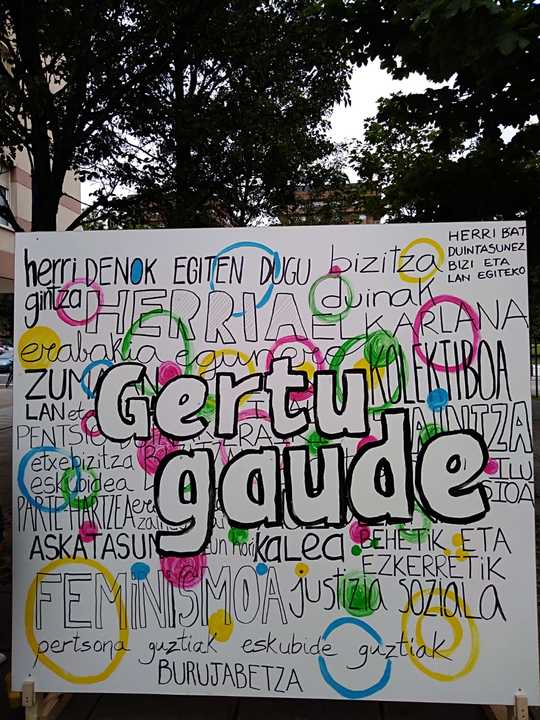 HERRI BAT
DUINTASUNEZ
BIZI ETA
LAN EGITEKO
herri DENOK EGITEN DUGU bizitza
gintza HERRIA duinak
ELKARLANA
erabakia egunero KOLEKTIBOA
Gertu
LAN et
PENTS
etxebizitza
gaude
eskubidea
PARTE HARTZEA
ASKATASUN kalea BEHETIK ETA
EZKERRETIK
FEMINISMOA justizia soziala
pertsona guztiak eskubide guztiak
BURUJABETZA